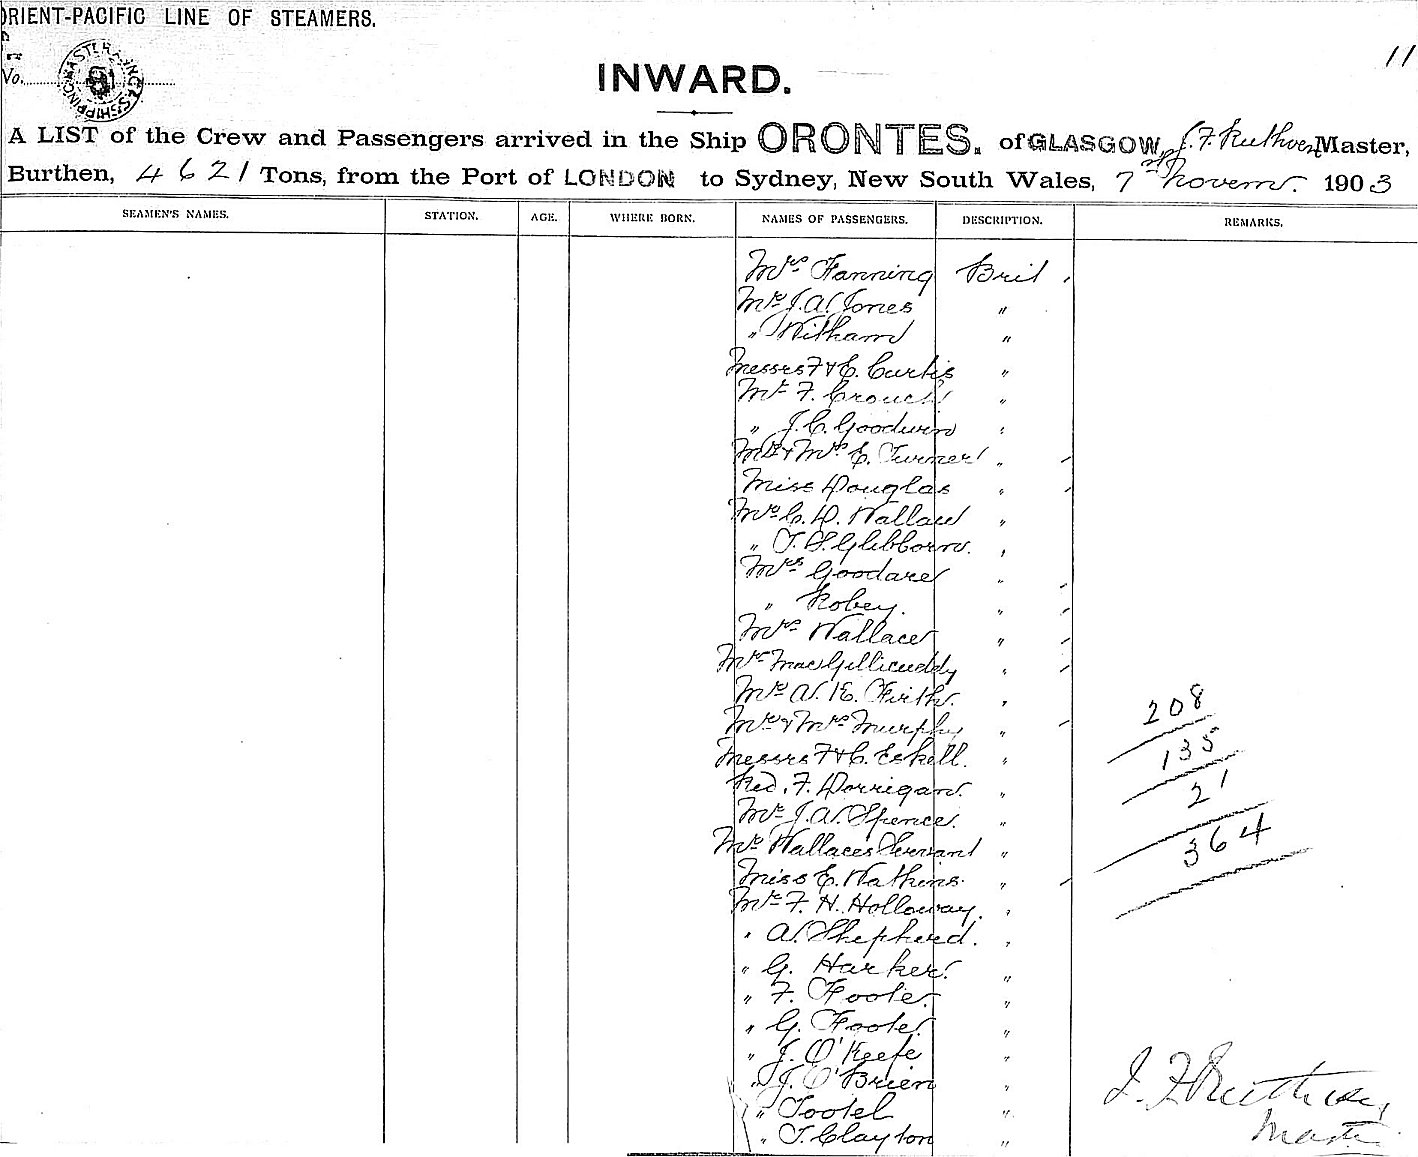 ORIENT-PACIFIC LINE OF STEAMERS.
11
No.
INWARD.
A LIST of the Crew and Passengers arrived in the Ship ORONTES. of GLASGOW, J. F. Ruthven Master,
Burthen, 4621 Tons, from the Port of LONDON to Sydney, New South Wales, 7th Novemr. 1903
SEAMEN'S NAMES. STATION. AGE. WHERE BORN. NAMES OF PASSENGERS. DESCRIPTION. REMARKS.
Mrs Fanning Brit
Mr J. A. Jones "
" Witham "
Messrs F & C. Curtis "
Mr F. Crouch "
" J. C. Goodwin "
Mr & Mrs E. Turner "
Miss Douglas "
Mr C. D. Wallace "
" T. S. Glibborn. "
Mrs Goodare "
" Robey. "
Mrs Wallace "
Mrs MacGillicuddy "
Mr A. E. Firth. "
Mr & Mrs Murphy "
208
Messrs F & C. Eskell. "
135
Red. F. Dorrigan. "
21
Mr J. A. Spence. "
Mr Wallaces Servant "
364
Miss E. Watkins. "
Mr F. H. Holloway. "
" A. Shepherd. "
" G. Harker. "
" F. Foote. "
" G. Foote. "
" J. O'Keefe "
" J. O'Brien "
J. F. Ruthven
" Tootel "
Master
" T. Clayton "